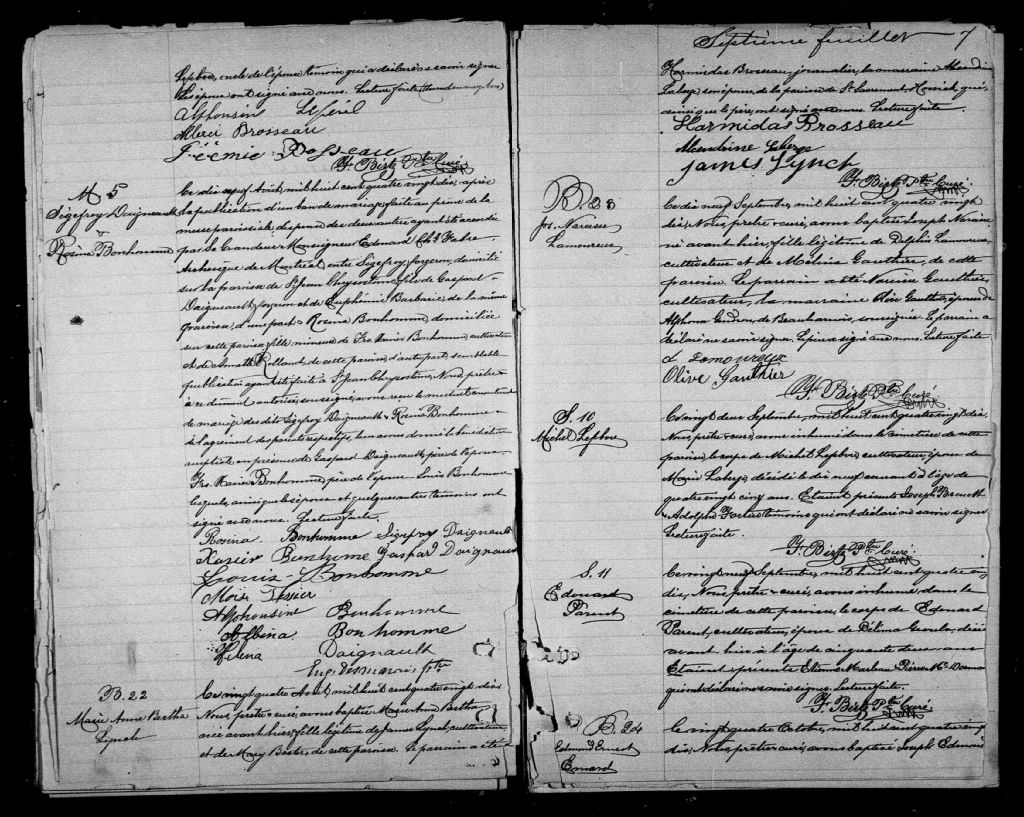 Lefebvre, oncle de l'épouse témoin qui a déclaré savoir signer
Les époux ont signé avec nous. Lecture faite
Alphonsine
Merci Brosseau
Y. Birtz Ptre Curé
M 5
Sigefroy Daigneault
&
Rosina Bonhomme
Ce dix neuf Août, mil huit cent quatre vingt dix, après
la publication d'un ban de mariage faite au prône de la
messe paroissiale, dispense des deux autres ayant été accordée
par Sa Grandeur Monseigneur Edouard Chs Fabre
Archevêque de Montréal, entre Sigefroy, forgeron, domicilié
sur la paroisse de St Jean Chrysostome, fils de Gaspard
Daigneault, forgeron et de Euphémie Barbarie, de la même
paroisse, d'une part & Rosina Bonhomme, domiciliée
sur cette paroisse, fille mineure de Frs Xavier Bonhomme, cultivateur
et de Rolland, de cette paroisse, d'autre part, semblable
publication ayant été faite à St Jean Chrysostome, Nous prêtre
à ce dûment autorisé, soussigné, avons reçu le mutuel consentement
de mariage des dits Sigefroy Daigneault & Rosina Bonhomme
de l'agrément des parents respectifs, leur avons donné la bénédiction
nuptiale en présence de Gaspard Daigneault, père de l'époux
Frs Xavier Bonhomme, père de l'épouse Louis Bonhomme
lesquels, ainsi que les époux et quelques autres témoins ont
signé avec nous. Lecture faite.
Rosina Bonhomme Sigefroy Daignault
Xavier Bonhome Gaspard Daignault
Louis Bonhomme
Mois Tessier
Alphonsine Bonhomme
Albina Bonhomme
Helena Daignault
ptre
B. 22
Marie Anne Bertha
Lynch
Ce vingt quatre Août, mil huit cent quatre vingt dix
Nous, prêtre & curé, avons baptisé Marie Anne Bertha
née avant hier, fille légitime de James Lynch, cultivateur
et de Mary de cette paroisse. Le parrain a été
Septième feuillet 7
Hormidas Brosseau, journalier, la marraine
Laberge, son épouse, de la paroisse de St Sacrement Howick, qui,
ainsi que le père, ont signé avec nous. Lecture faite.
Harmidas Brosseau
Laberge
James Lynch
Y. Birtz Ptre Curé
B. 23
Jos. Narcisse
Lamoureux
Ce dix neuf Septembre, mil huit cent quatre vingt
dix, Nous, prêtre & curé, avons baptisé Joseph Narcisse
né avant hier, fils légitime de Delphis Lamoureux
cultivateur et de Malvina Gauthier, de cette
paroisse. Le parrain a été Narcisse Gauthier
cultivateur, la marraine Olive Gauthier, épouse de
Alphonse de Beauharnois, soussignée. Le parrain a
déclaré ne savoir signer. Le père a signé avec nous. Lecture faite
D Lamoureux
Olive Gauthier
Y. Birtz Ptre Curé
S. 10
Michel Lefebvre
Ce vingt deux Septembre, mil huit cent quatre vingt dix,
Nous, prêtre & curé, avons inhumé dans le cimetière de cette
paroisse, le corps de Michel Lefebvre, cultivateur, époux de
Marie Laberge décédé le dix neuf courant à l'âge de
quatre vingt cinq ans. Etaient présents Joseph
& Adolphe témoins qui ont déclaré ne savoir signer
Lecture faite.
Y. Birtz Ptre Curé
S. 11
Edouard
Parent
Ce vingt neuf Septembre, mil huit cent quatre vingt
dix, Nous, prêtre & curé, avons inhumé dans le
cimetière de cette paroisse, le corps de Edouard
Parent, cultivateur, époux de Délima décédé
avant hier à l'âge de cinquante deux ans
Etaient présents Etienne Marleau Pierre
qui ont déclaré ne savoir signer. Lecture faite.
Y. Birtz Ptre Curé
B. 24
Edmond Ernest
Emard
Ce vingt quatre Octobre, mil huit cent quatre vingt
dix, Nous, prêtre & curé, avons baptisé Joseph Edmond